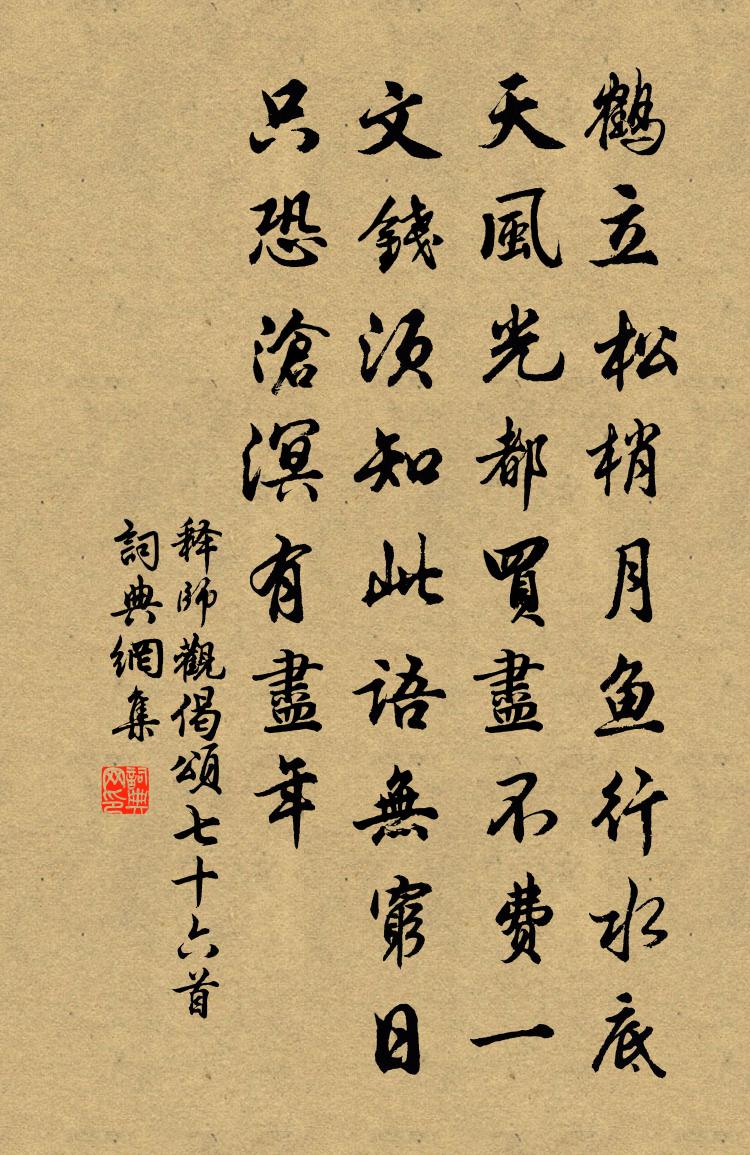 鶴立松梢月鱼行水底
天風光都買盡不费一
文錢须知此語無窮日
只恐滄溟有盡年
释師觀偈頌七十六首
詞典網集
詞典网印